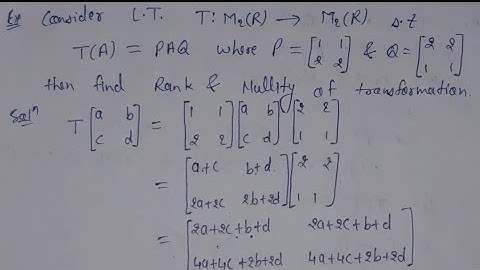 Ex Consider L.T. T: M₂(R) → M₂(R) s.t
T(A) = PAQ where P = [1 1; 2 2] & Q = [2 2; 1 1]
then find Rank & Nullity of transformation.
Solⁿ T[a b; c d] = [1 1; 2 2][a b; c d][2 2; 1 1]
= [a+c b+d; 2a+2c 2b+2d][2 2; 1 1]
= [2a+2c+b+d 2a+2c+b+d; 4a+4c+2b+2d 4a+4c+2b+2d]